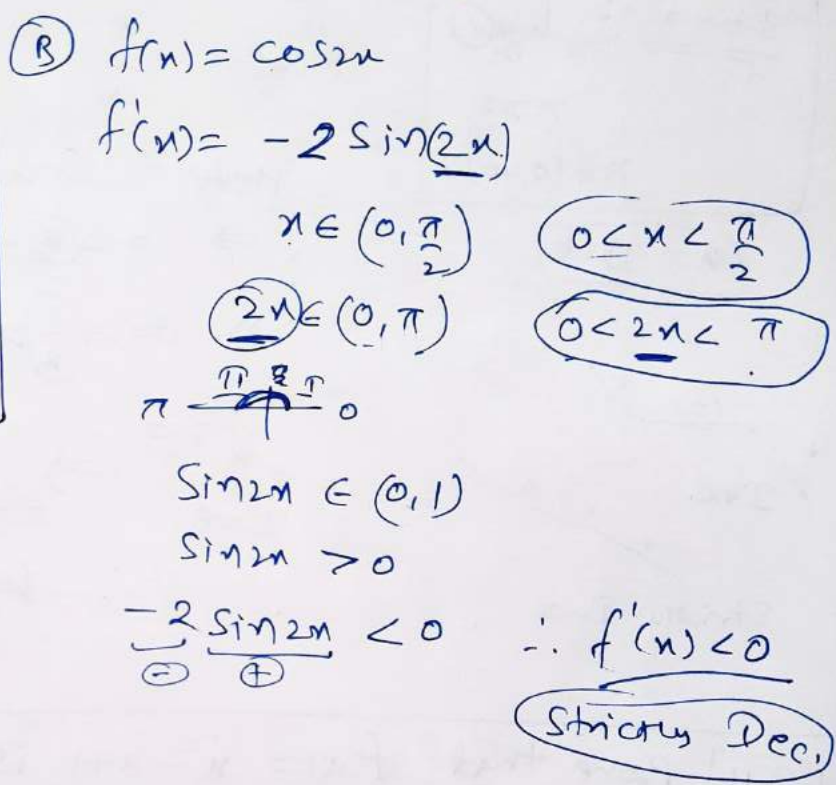 B f(x) = cos2x
f'(x) = -2 Sin(2x)
x ∈ (0, π/2) 0 < x < π/2
2x ∈ (0, π) 0 < 2x < π
π II I 0
Sin2x ∈ (0, 1)
Sin2x > 0
-2 Sin2x < 0 ∴ f'(x) < 0
- +
Strictly Dec.